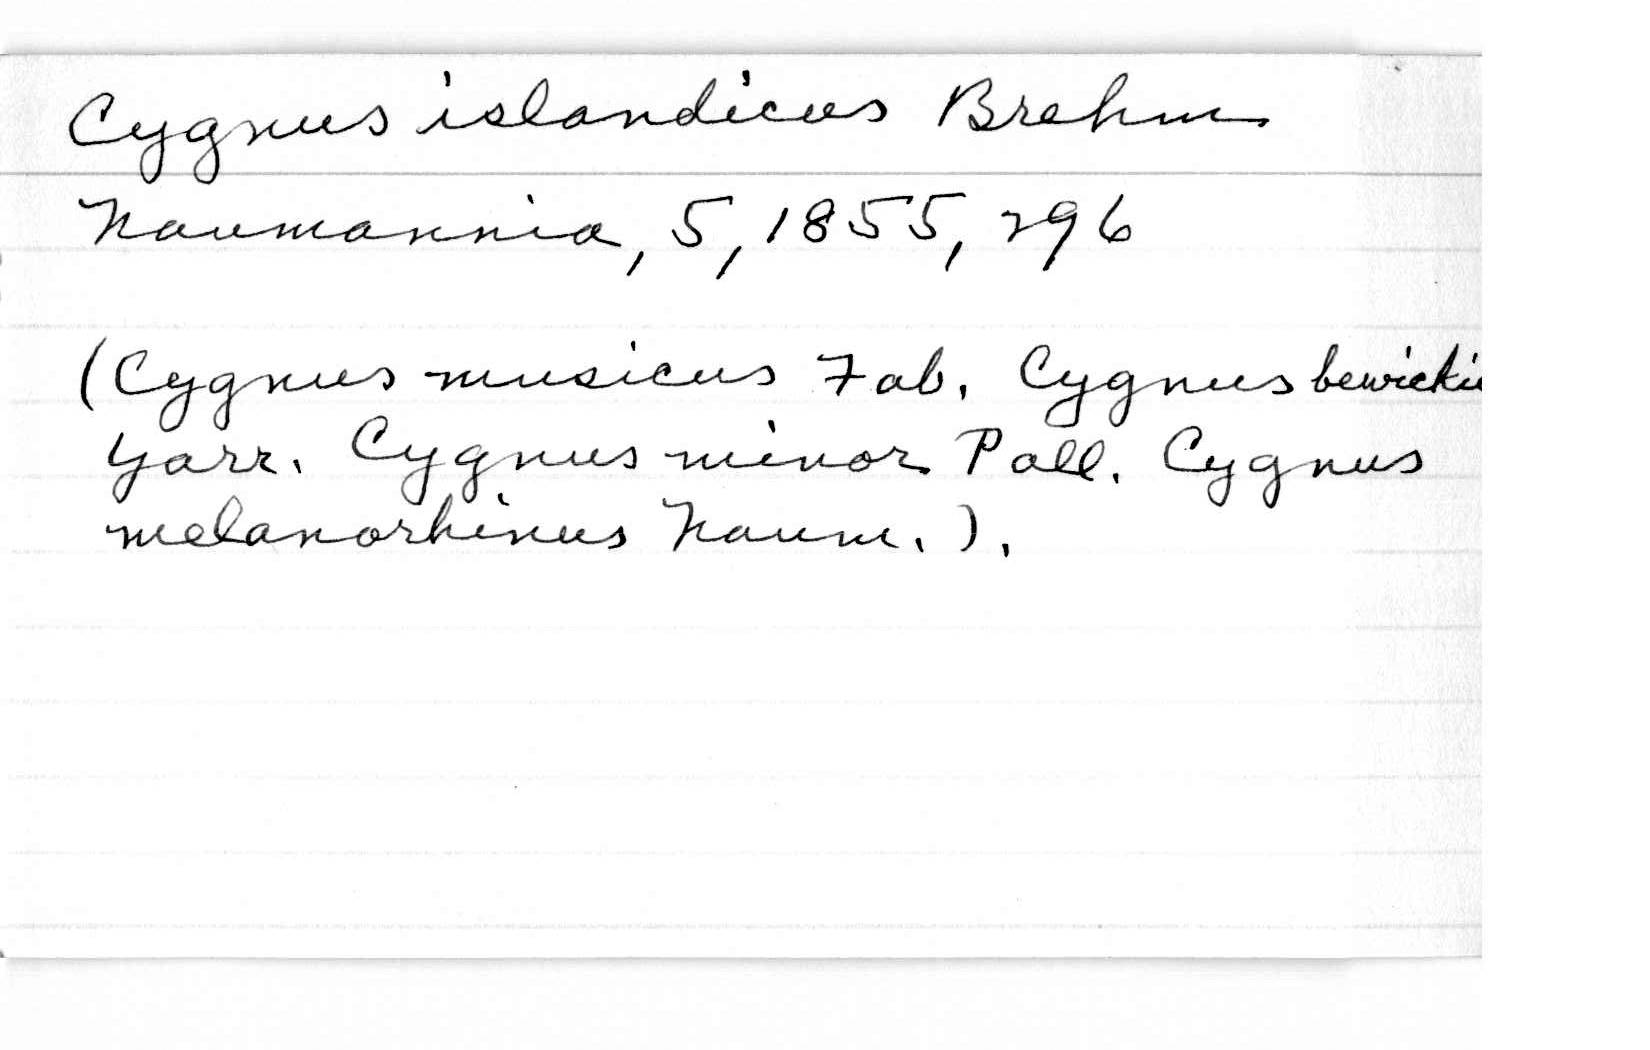 Cygnus islandicus Brehm
Naumannia, 5, 1855, 296
(Cygnus musicus Fab. Cygnus bewickii
Yarr. Cygnus minor Pall. Cygnus
melanorhinus Naum.).